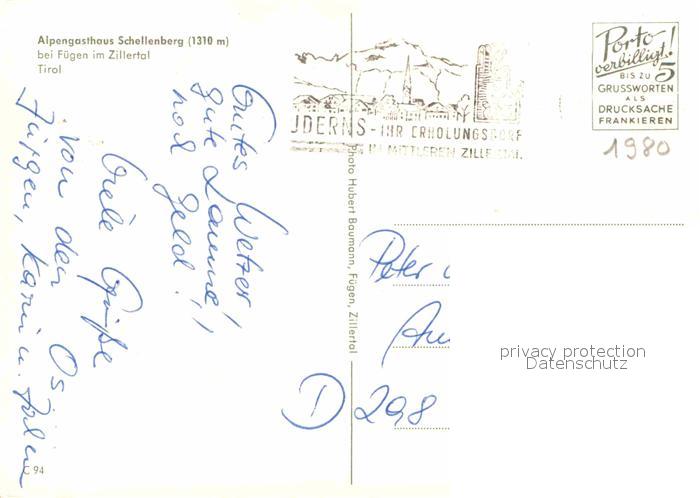 Alpengasthaus Schellenberg (1310 m)
bei Fügen im Zillertal
Tirol
Gutes Wetter!
gute Laune!
noch Geld!
Viele Grüße
von den Os
Jürgen, Karin u.
C 94
Photo Hubert Baumann, Fügen, Zillertal
UDERNS - IHR ERHOLUNGSDORF
IM MITTLEREN ZILLERTAL
Porto
verbilligt!
BIS ZU 5
GRUSSWORTEN
ALS
DRUCKSACHE
FRANKIEREN
1980
Peter
D 298
privacy protection
Datenschutz